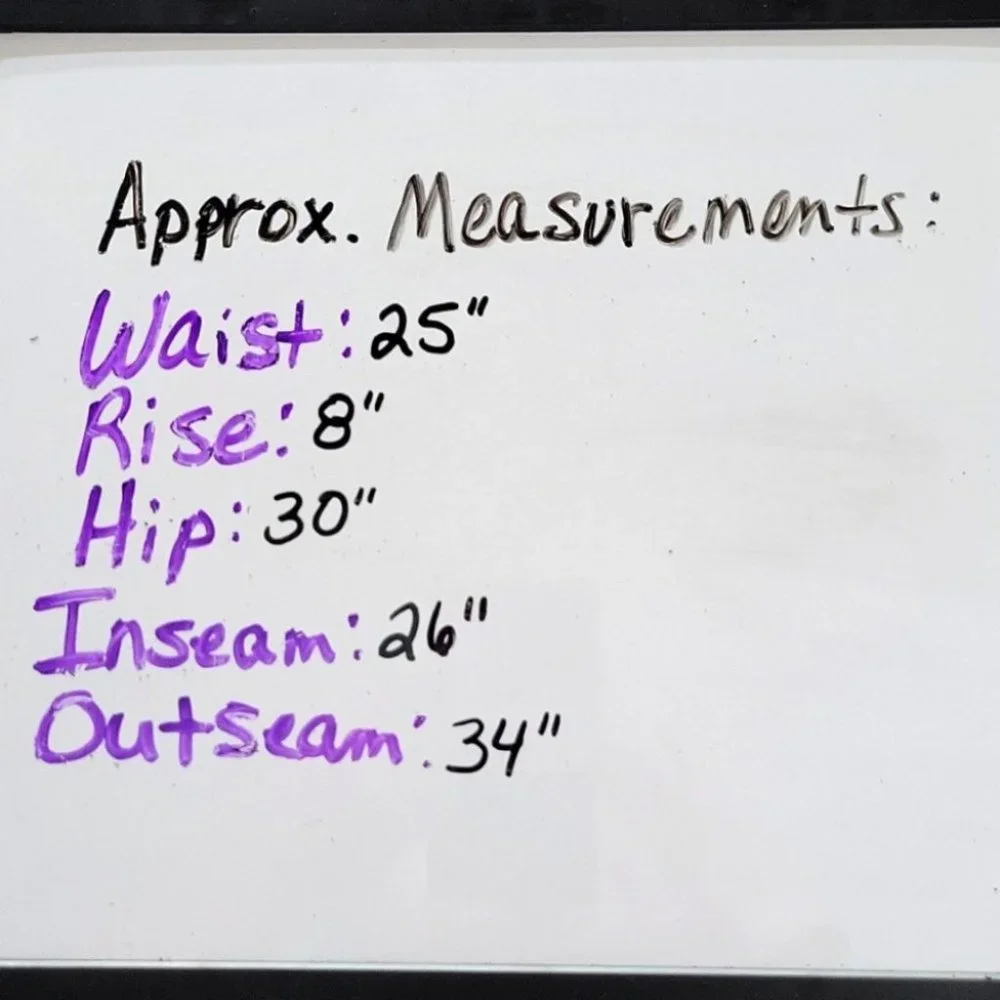 Approx. Measurements:
Waist: 25"
Rise: 8"
Hip: 30"
Inseam: 26"
Outseam: 34"